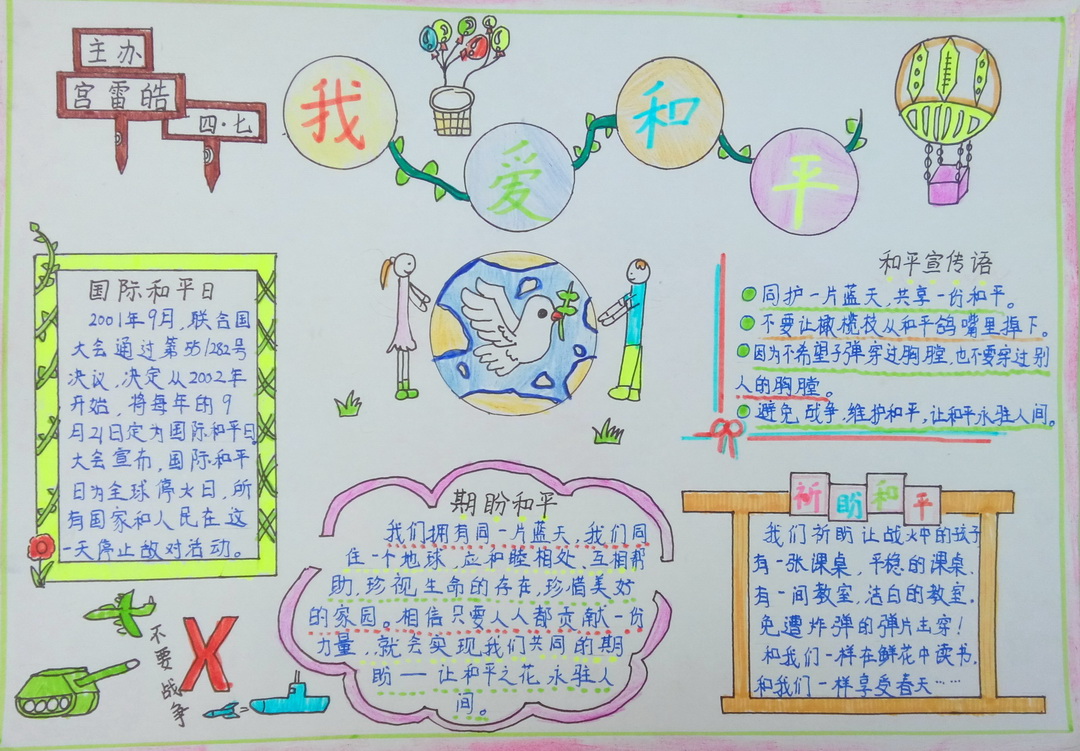 主办
宫雷皓
四·七
我爱和平
国际和平日
2001年9月，联合国
大会通过第55/282号
决议，决定从2002年
开始，将每年的9
月21日定为国际和平日。
大会宣布，国际和平
日为全球停火日，所
有国家和人民在这
一天停止敌对活动。
和平宣传语
同护一片蓝天，共享一份和平。
不要让橄榄枝从和平鸽嘴里掉下。
因为不希望子弹穿过胸膛，也不要穿过别
人的胸膛。
避免战争，维护和平，让和平永驻人间。
期盼和平
我们拥有同一片蓝天，我们同
住一个地球，应和睦相处，互相帮
助，珍视生命的存在，珍惜美好
的家园。相信只要人人都贡献一份
力量，就会实现我们共同的期
盼——让和平之花永驻人
间。
祈盼和平
我们祈盼让战火中的孩子
有一张课桌，平稳的课桌.
有一间教室，洁白的教室.
免遭炸弹的弹片击穿！
和我们一样在鲜花中读书.
和我们一样享受春天……
不要战争